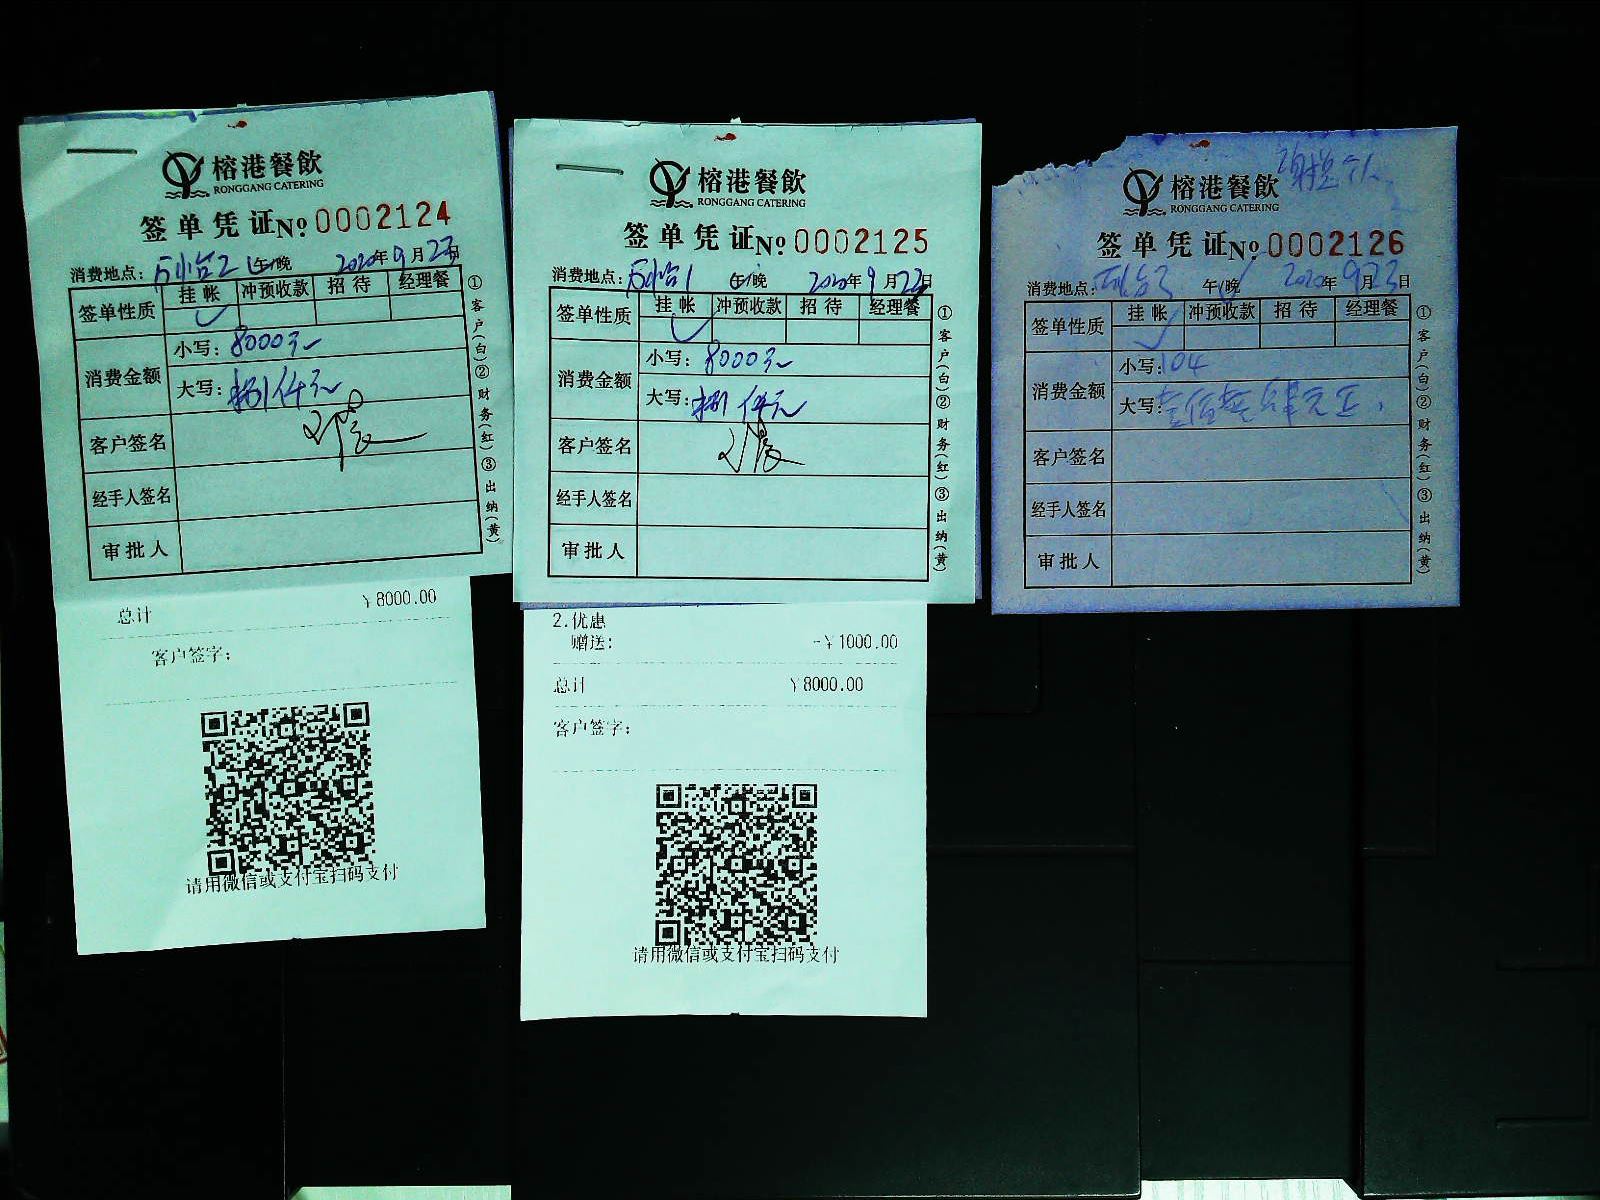 榕港餐飲
RONGGANG CATERING
签单凭证№0002124
消费地点: 午/晚 2020年9月23日
签单性质 挂帐 冲预收款 招待 经理餐
消费金额
小写: 8000元
大写: 捌仟元
客户签名
经手人签名
审批人
①客户(白)②财务(红)③出纳(黄)
总计 ¥8000.00
客户签字:
请用微信或支付宝扫码支付
榕港餐飲
RONGGANG CATERING
签单凭证№0002125
消费地点: 午/晚 2020年9月22日
签单性质 挂帐 冲预收款 招待 经理餐
消费金额
小写: 8000元
大写: 捌仟元
客户签名
经手人签名
审批人
①客户(白)②财务(红)③出纳(黄)
2.优惠
赠送: -¥1000.00
总计 ¥8000.00
客户签字:
请用微信或支付宝扫码支付
榕港餐飲
RONGGANG CATERING
签单凭证№0002126
消费地点: 午/晚 2020年9月23日
签单性质 挂帐 冲预收款 招待 经理餐
消费金额
小写: 104
大写: 壹佰零肆元正
客户签名
经手人签名
审批人
①客户(白)②财务(红)③出纳(黄)